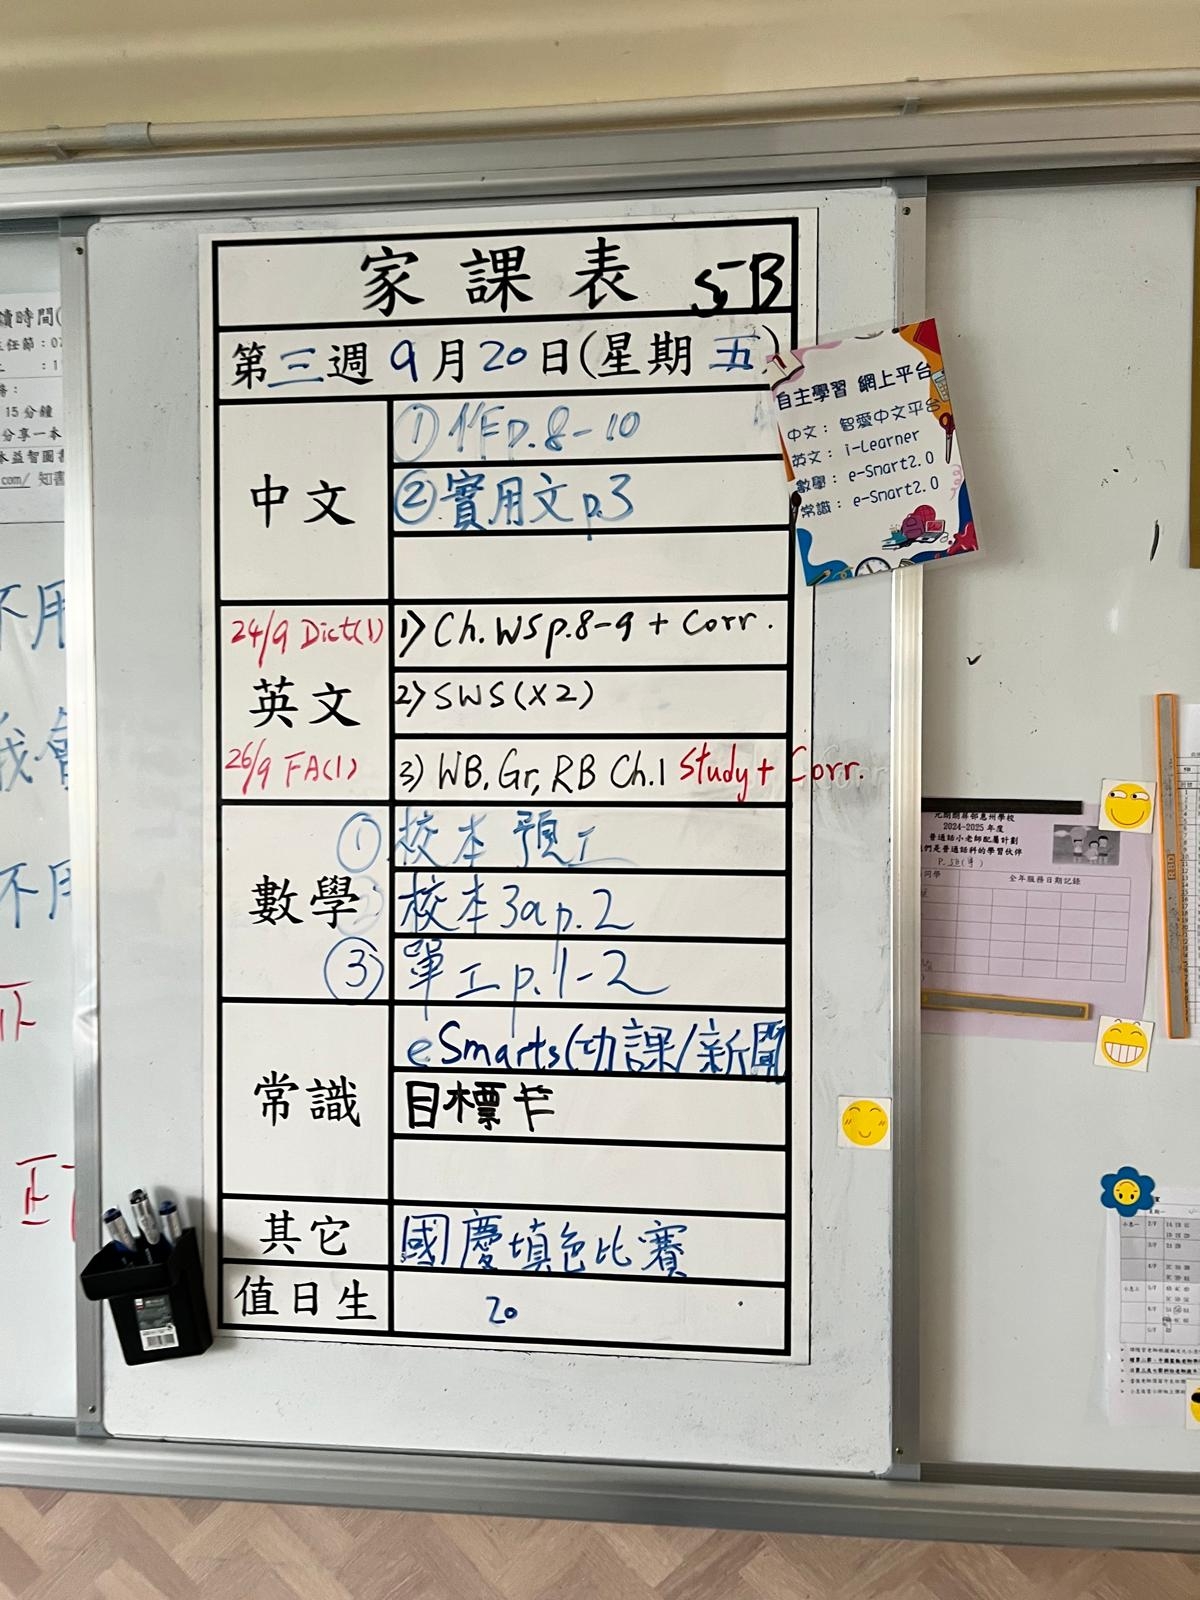 家課表 5B
第三週9月20日(星期五)
中文
① 作p.8-10
② 實用文p.3
24/9 Dict(1)
英文
26/9 FA(1)
1) Ch.WSp.8-9 + Corr.
2) SWS(x2)
3) WB, Gr, RB Ch.1 Study + Corr.
數學
① 校本預工
② 校本3a p.2
③ 單工p.1-2
常識
eSmarts(功課/新聞
目標卡
其它
國慶填色比賽
值日生
20
自主學習 網上平台
中文：智愛中文平台
英文：i-Learner
數學：e-Smart2.0
常識：e-Smart2.0
讀時間(
15分鐘
分享一本
.com/ 知書
不用
我會
不用
2024-2025 年度
普通話小老師配屬計劃
們是普通話科的學習伙伴
P. 5B(
同學
全年服務日期記錄